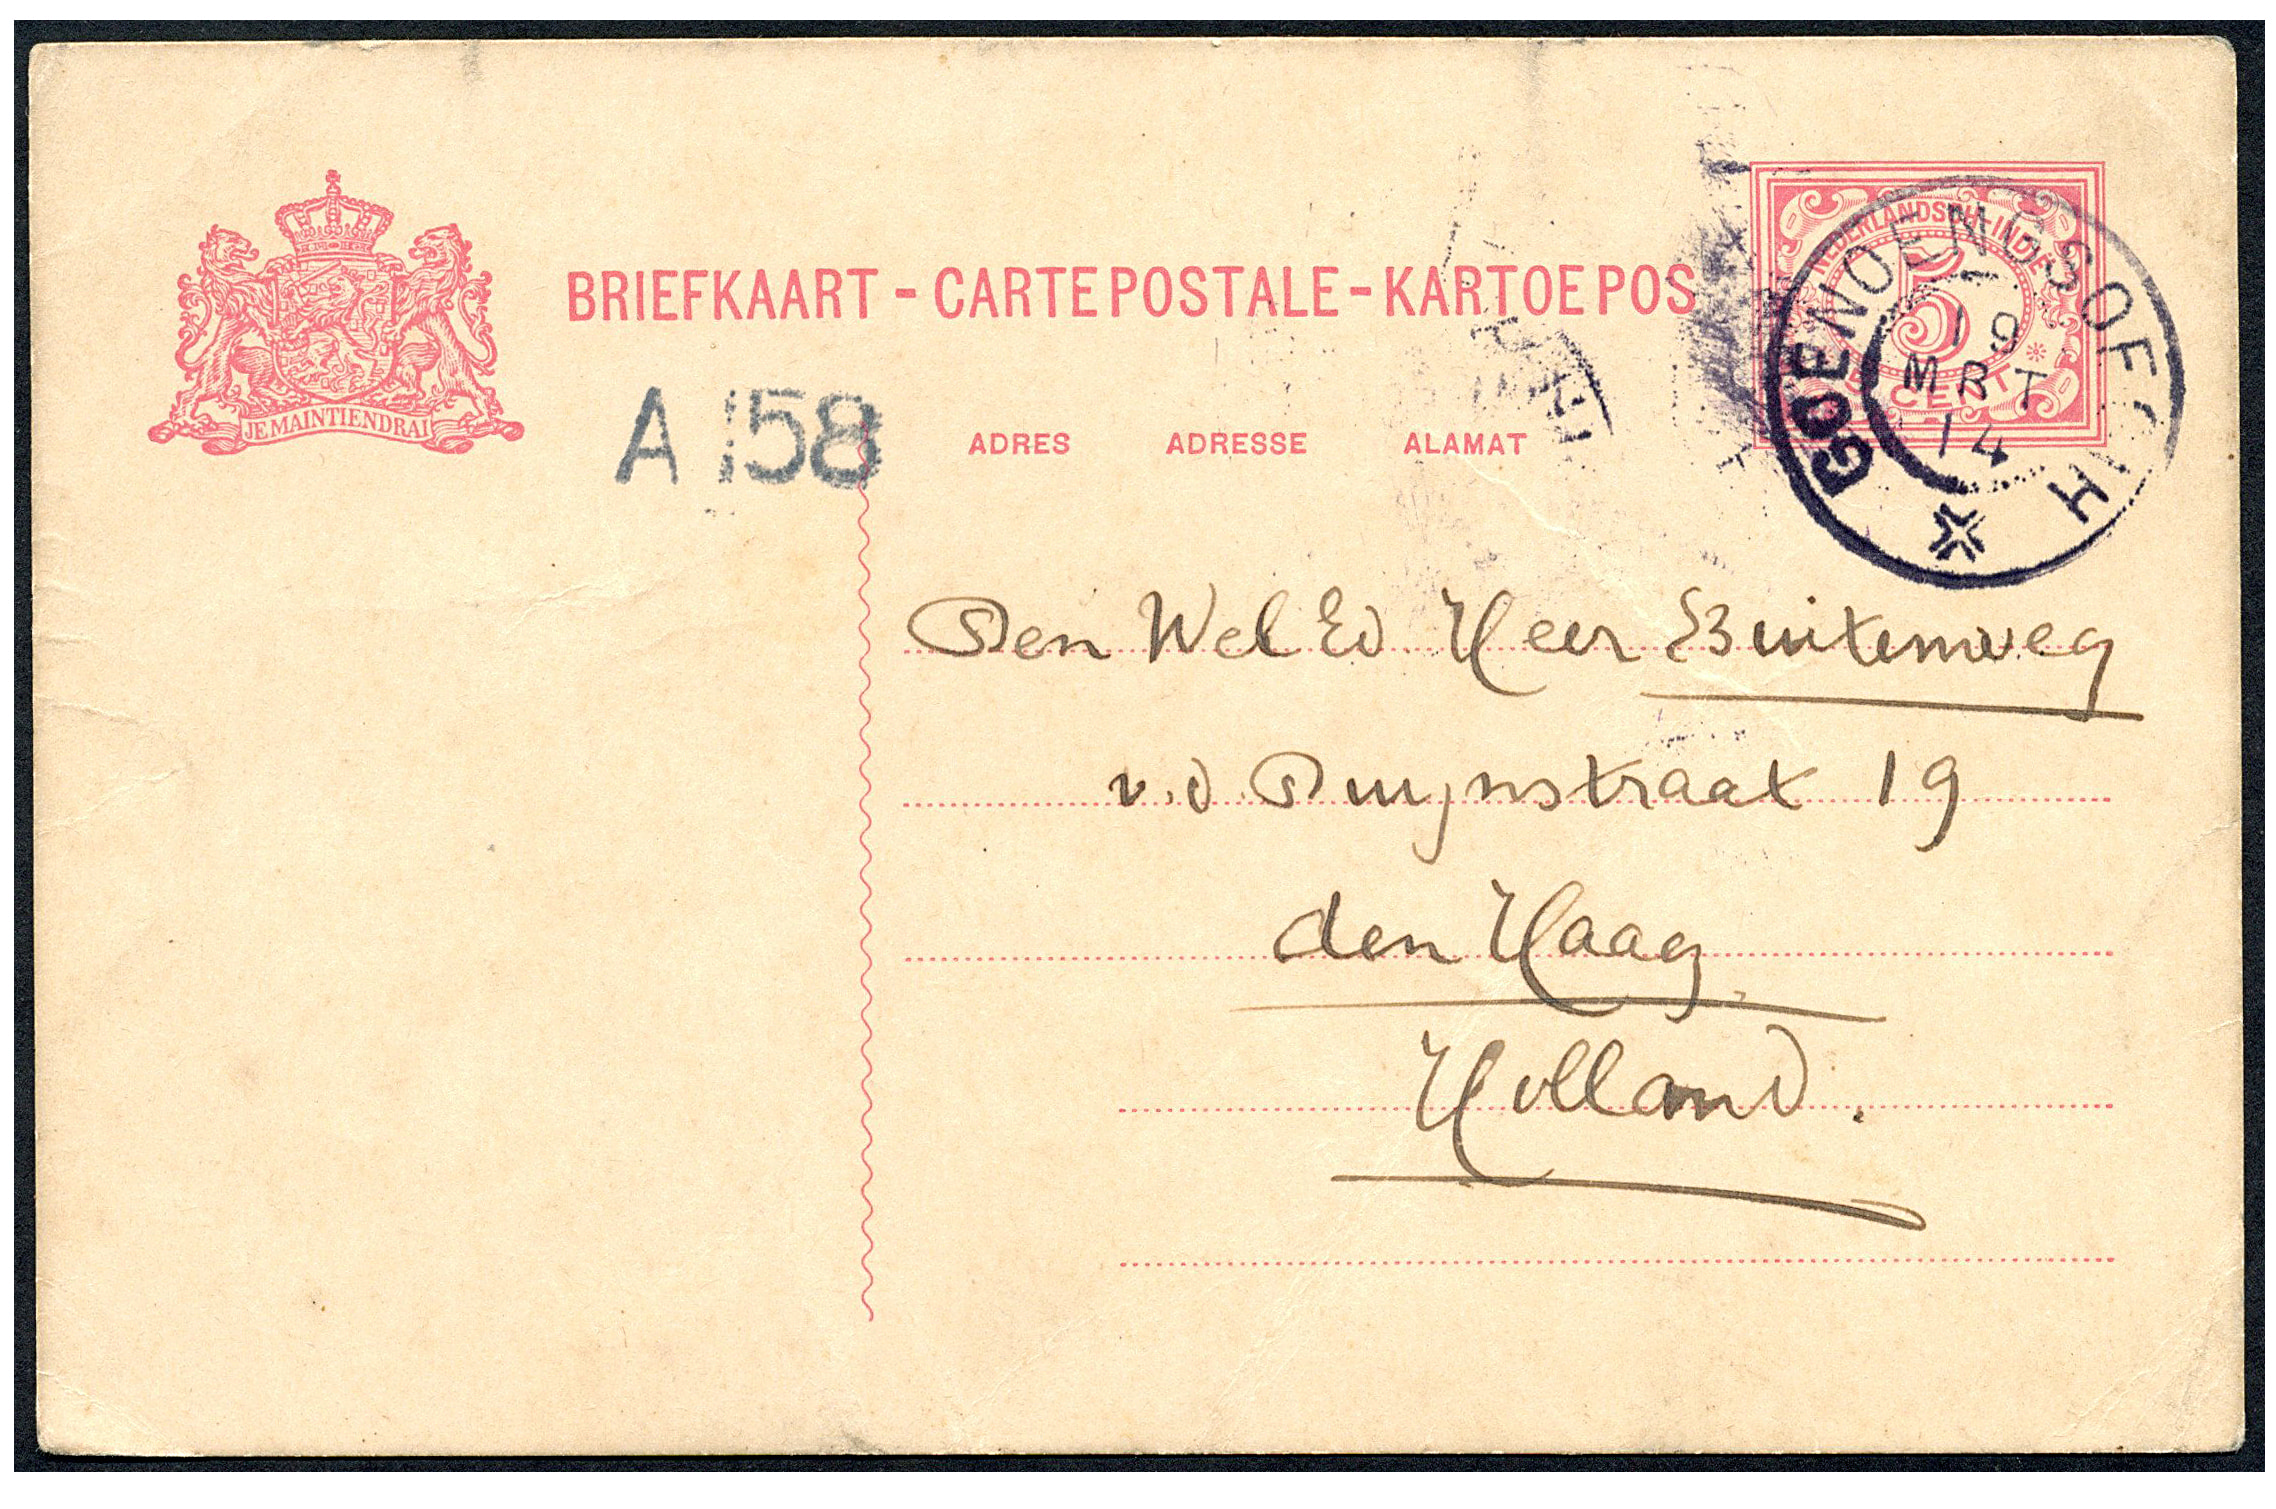 BRIEFKAART - CARTE POSTALE - KARTOE POS
NEDERLANDSCH-INDIË
5
CENT
GOENOENGSOEGIH
19
MRT
14
JE MAINTIENDRAI
A 158
ADRES ADRESSE ALAMAT
Den Wel Ed Heer Buitenweg
v.d. Duynstraat 19
den Haag.
Holland.